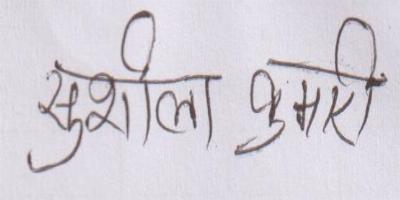 सुशीला कुमारी